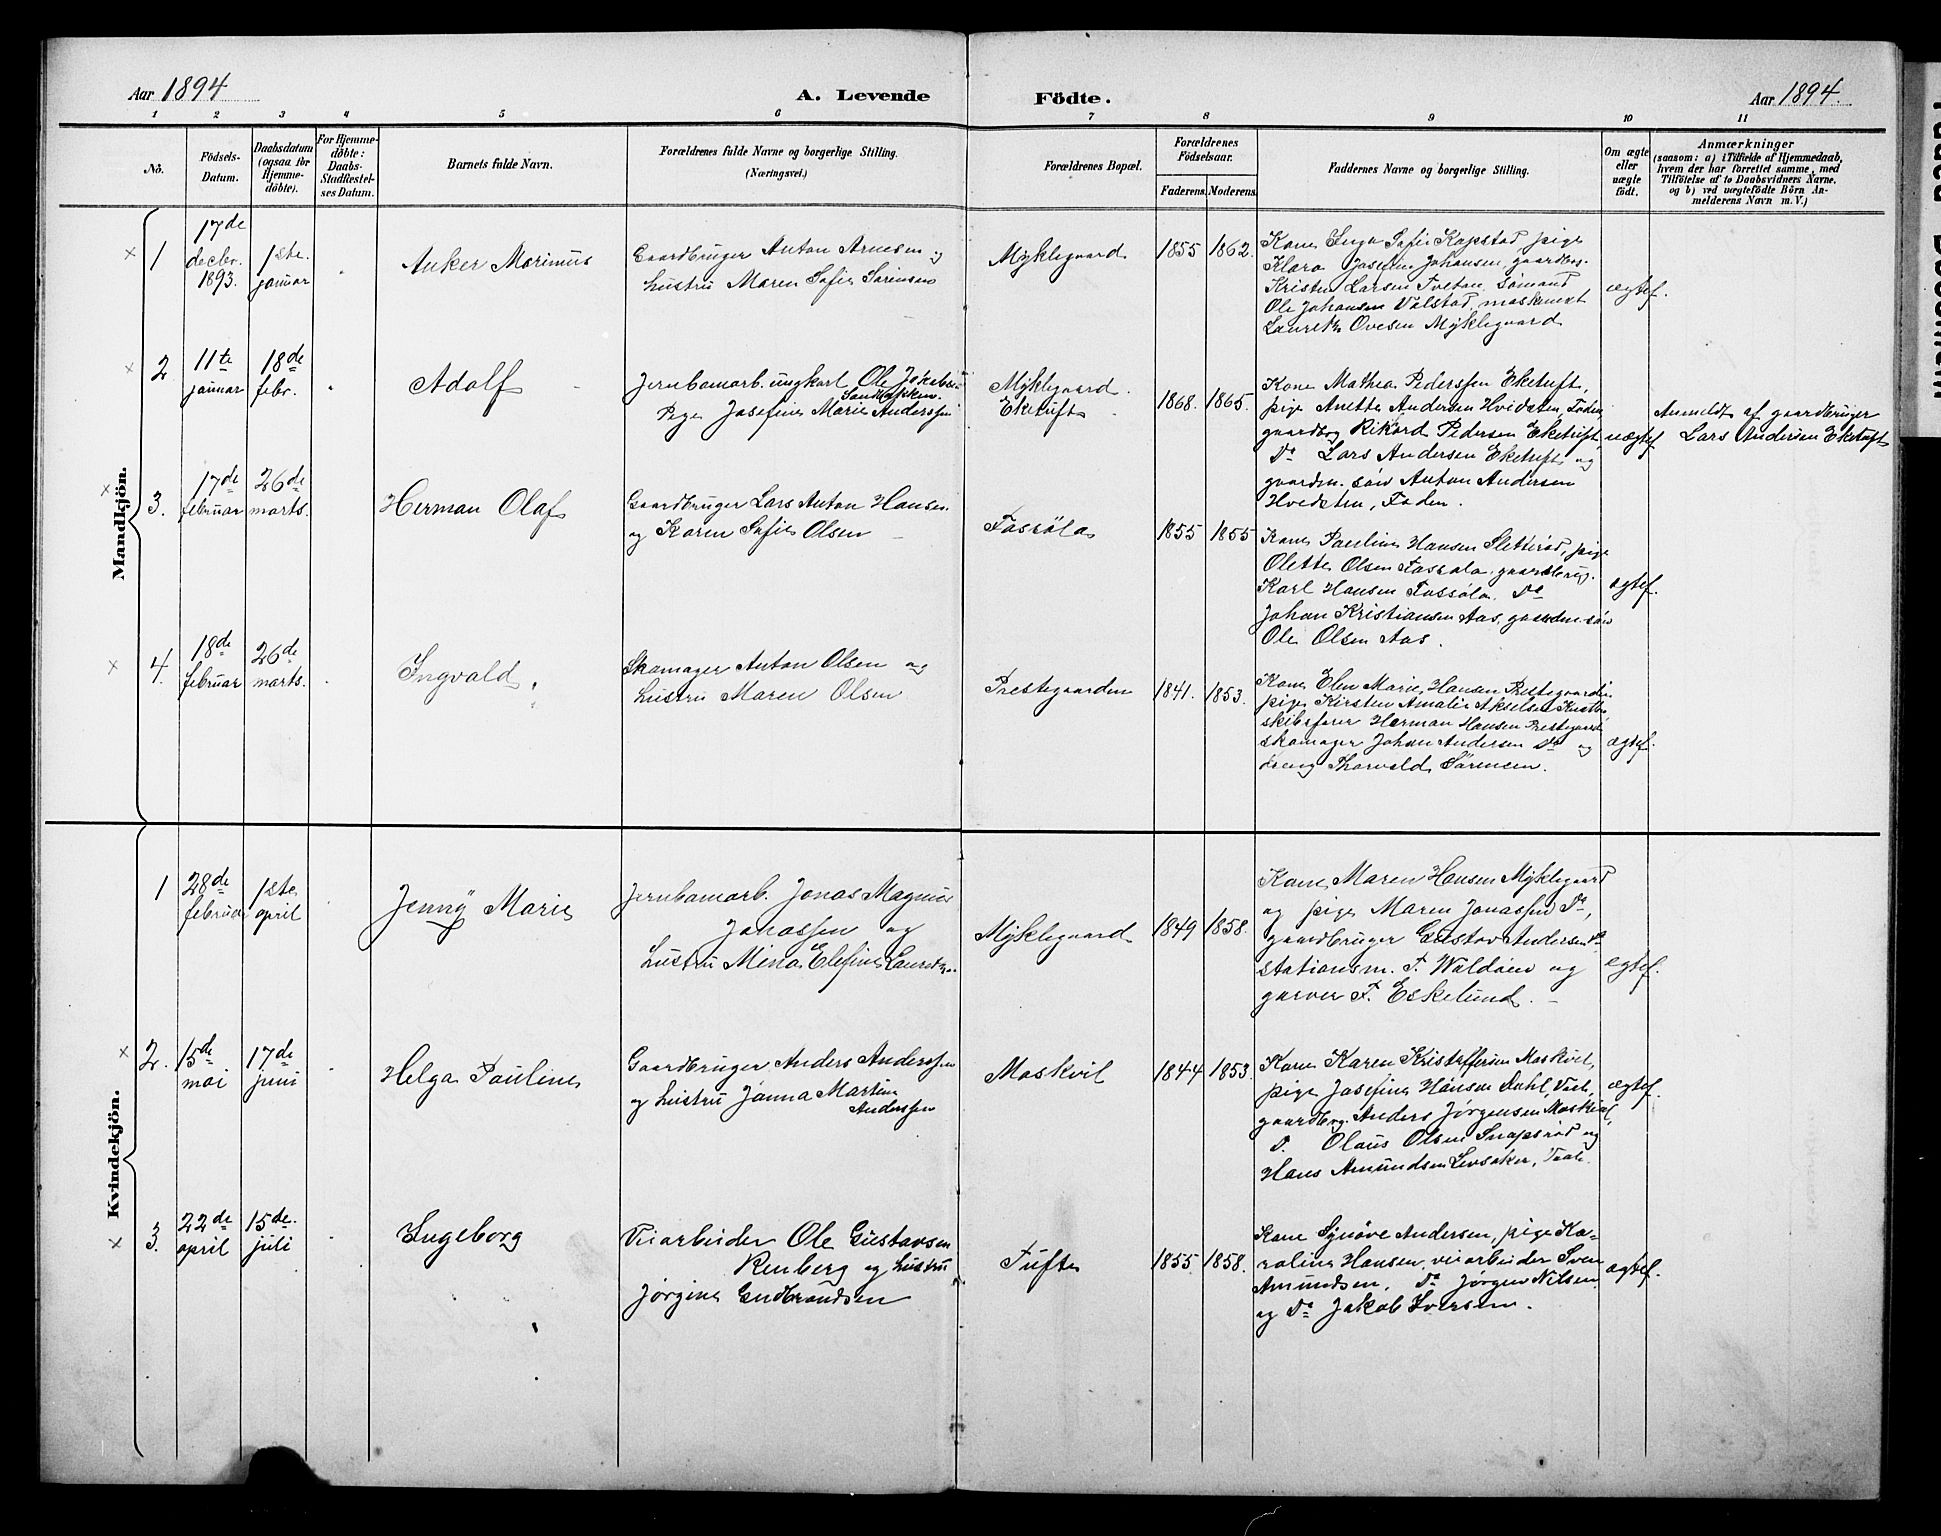 Aar 1894
A. Levende Födte.
Aar 1894.
1 2 3 4 5 6 7 8 9 10 11
No.
Födsels-
Datum.
Daabsdatum
(ogsaa for
Hjemme-
döbte).
For Hjemme-
döbte:
Daabs-
Stadfæstel-
ses Datum.
Barnets fulde Navn.
Forældrenes fulde Navne og borgerlige Stilling.
(Næringsvei.)
Forældrenes Bopæl.
Forældrenes
Födselsaar.
Faderens. Moderens.
Faddernes Navne og borgerlige Stilling.
Om ægte
eller
uægte
födt.
Anmærkninger
(saasom: a) i Tilfælde af Hjemmedaab,
hvem der har forrettet samme, med
Tilföielse af to Daabsvidners Navne,
og b) ved uægtefödte Börn An-
melderens Navn m. V.)
Mandkjön.
1
17de
decbr.
1893.
1ste
januar
Anker Marinus
Gaardbruger Anton Arnesen og
hustru Maren Sofie Sørensen
Myklegaard
1855 1862.
Kone Inga Sofie Kopstad, pige
Klara Josefine Johansen, gaardbr.
Kristen Larsen Tveten, sømand
Ole Johansen Valstad, maskinext
Lauretz Ovesen Myklegaard
ægtef.
2
11te
januar
18de
febr.
Adolf
Jernbanearb. ungkarl Ole Jakobsen
Pige Josefine Marie Anderssen
Myklegaard.
Eketuft
1868. 1865.
Kone Mathea Pederssen Eketuft,
pige Anette Andersen Hvidsten, Foden,
gaardbrg Rikard Pedersen Eketuft,
Do Lars Andersen Eketuft og
gaardm. søn Anton Andersen
Hvidsten, Foden.
uægtef.
Anmeldt af gaardbruger
Lars Andersen Eketuft
3.
17de
februar
26de
marts.
Herman Olaf
Gaardbruger Lars Anton Hansen
og Karen Sofie Olsen
Fossøla
1855 1855
Kone Pauline Hansen Sletterød, pige
Olette Olsen Fossøla, gaardbrug.
Karl Hansen Fossøla, Do
Johan Kristiansen Aas, gaardm. søn
Ole Olsen Aas.
ægtef.
4.
18de
februar
26de
marts.
Ingvald
Skomager Anton Olsen og
hustru Maren Olsen
Prestegaarden
1841. 1853.
Kone Elen Marie Hansen Prestegaarden,
pige Kirsten Amalie Akselsen
skibsfører Herman Hansen Prestegaard
skomager Johan Andersen Do og
dreng Thorvald Sørensen.
ægtef.
Kvindekjön.
1
28de
februar
1ste
april
Jenny Marie
Jernbanearb. Jonas Magnus
Jonassen og
hustru Mina Elefine
Myklegaard
1849 1858.
Kone Maren Hansen Myklegaard
og pige Maren Jonassen Do,
gaardbruger Gustav Andersen Do
stationsm. T. Waldøen og
garver F. Eskelund.
ægtef.
2.
15de
mai
17de
juni
Helga Pauline
Gaardbruger Anders Anderssen
og hustru Janna Martine
Anderssen
Moskvil
1844 1853.
Kone Karen Kristoffersen Moskvil,
pige Josefine Hansen Dahl, Vaale,
gaardbrg. Anders Jørgensen Moskvil,
D. Olaus Olsen Snapsrød og
Hans Amundsen Levsaker, Vaale.
ægtef.
3.
22de
april
15de
juli
Ingeborg
Veiarbeider Ole Gustavsen
Renberg og hustru
Jørgine Gudbrandsen
Tufte
1855. 1858.
Kone Synøve Andersen, pige Ka-
roline Hansen, veiarbeider Sven
Amundsen, Do Jørgen Nilsen
og Do Jakob Iversen.
ægtef.